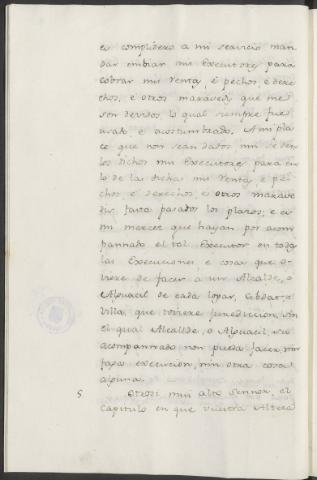 es complidero a mi servicio man
dar embiar mis Executores para
cobrar mis rentas, é pechos, é dere
chos, é otros maravedis que me
son devidos lo qual siempre fue
usado é acostumbrado. A mi pla
ce que non sean dados nin se den
los dichos mis Executores para en
lo de las dichas mis rentas é pe
chos é derechos é otros marave
dis fasta pasados los plazos, é es
mi merced que hayan por acom
pannado el tal Executor en todas
las Execuciones, é cosas que o
viere de facer a un Alcalde, o
Alguacil de cada logar, Cibdat, o
villa, que toviere jurediccion, sin
el qual Alcalde, o Alguacil, sic
acompannado non pueda facer, nin
faga execucion, nin otra cosa
alguna.
5 Otrosi mui alto Sennor, el
Capitulo en que vuestra Alteza